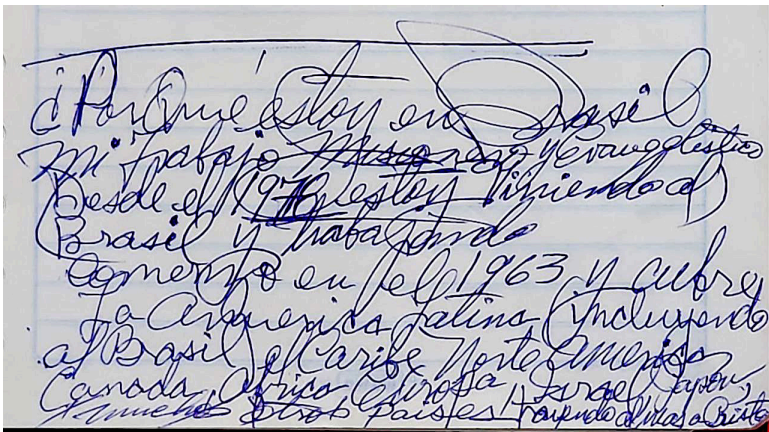 ¿Por Qué estoy en Brasil
mi trabajo Misionero y Evangelístico
Desde el 1970 estoy viniendo al
Brasil y trabajando
Comenzo en el 1963 y cubre
La America Latina (incluyendo
al Brasil) el Caribe Norte America
Canada, Africa Europa Israel Japon,
y muchos otros paises trayendo almas a Cristo